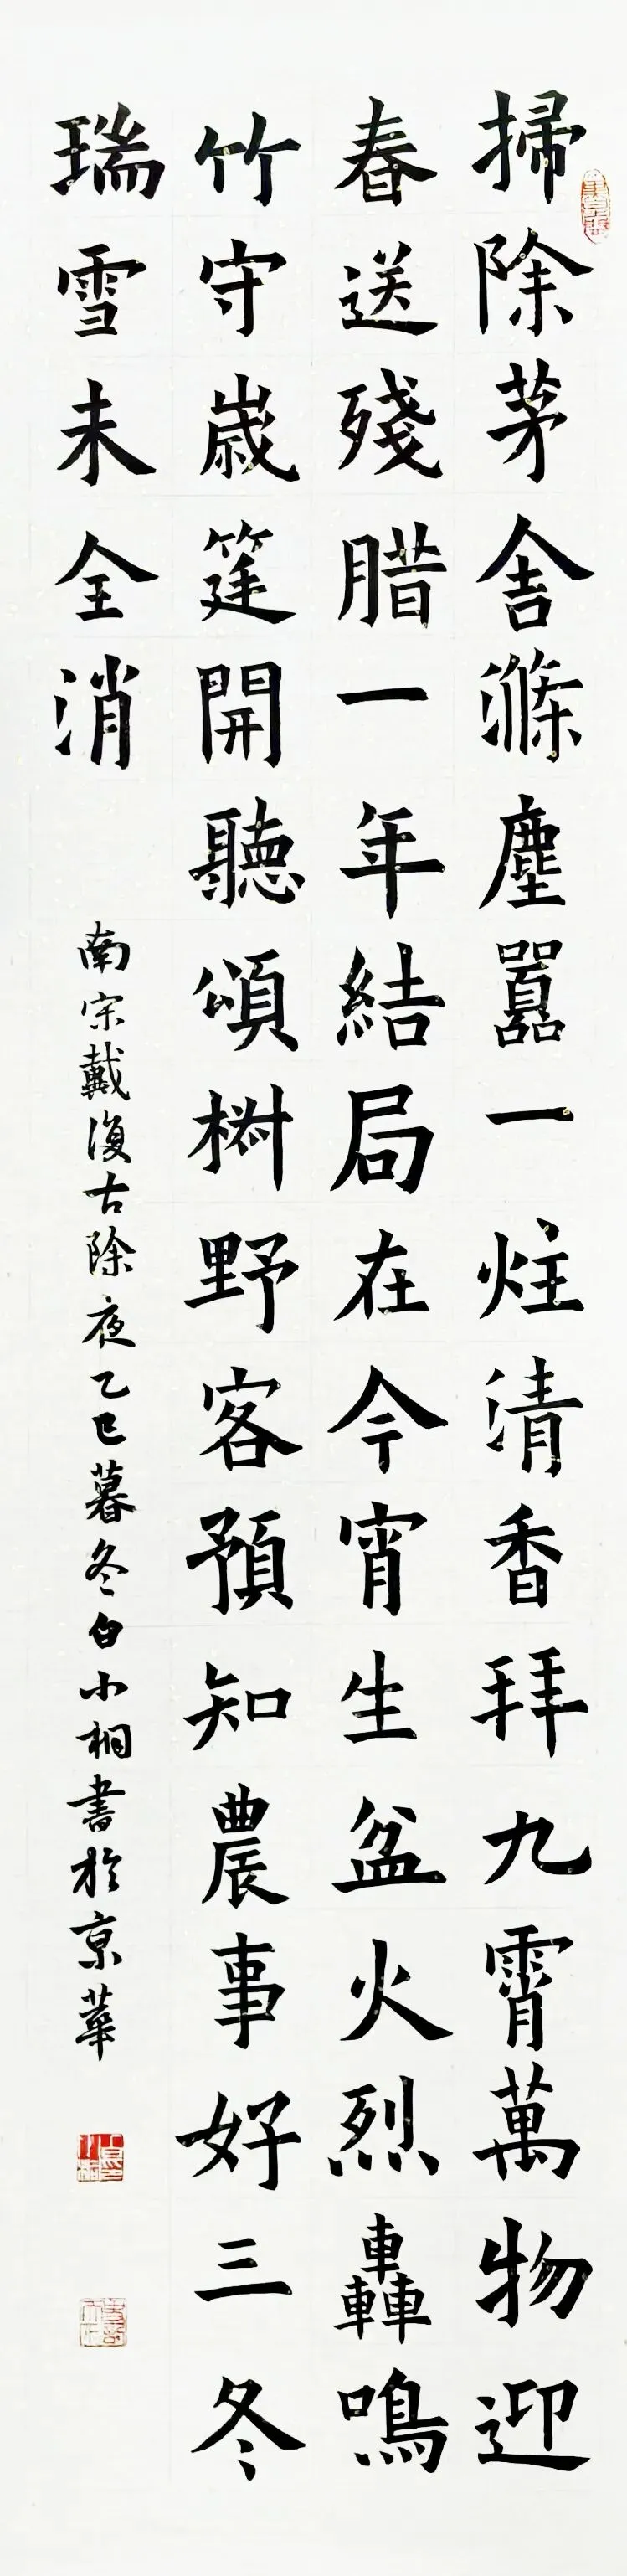 掃除茅舍滌塵囂一炷清香拜九霄萬物迎
春送殘腊一年結局在今宵生盆火烈轟鳴
竹守歲筵開聽頌椒野客預知農事好三冬
瑞雪未全消
南宋戴復古除夜乙巳暮冬白小桐書於京華